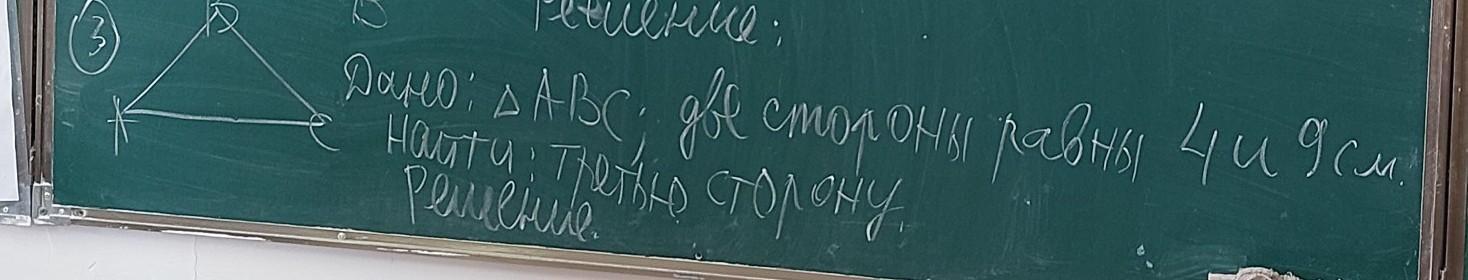 3 B B Решение:
Дано: △ABC; две стороны равны 4 и 9 см.
A C Найти: третью сторону.
Решение.